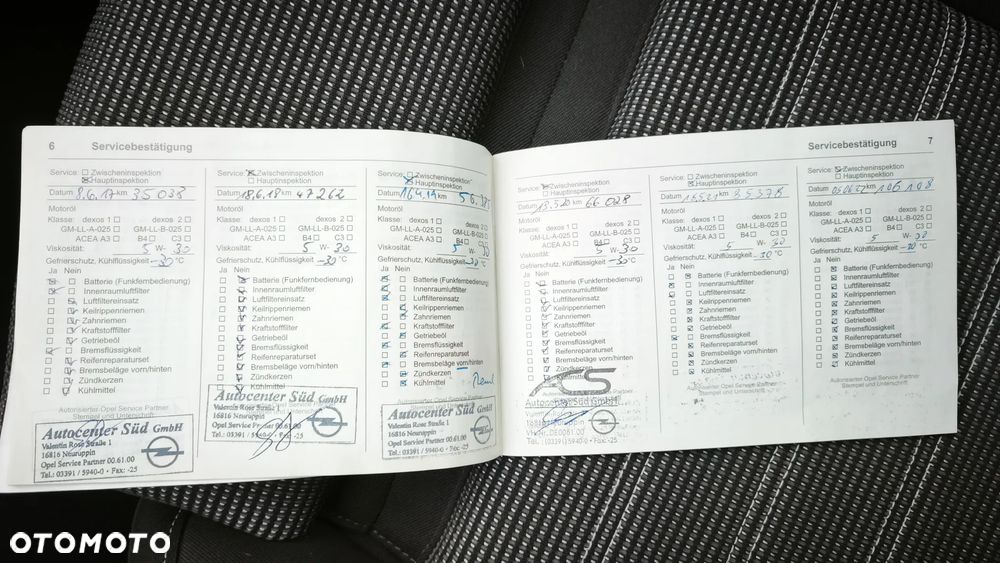 6 Servicebestätigung
Service: Zwischeninspektion
Hauptinspektion
Datum 8.6.17 km 35 038
Motoröl
Klasse: dexos 1 dexos 2
GM-LL-A-025 GM-LL-B-025
ACEA A3 B4 C3
Viskosität: 5 W- 30
Gefrierschutz, Kühlflüssigkeit -30 °C
Ja Nein
Batterie (Funkfernbedienung)
Innenraumluftfilter
Luftfiltereinsatz
Keilrippenriemen
Zahnriemen
Kraftstofffilter
Getriebeöl
Bremsflüssigkeit
Reifenreparaturset
Bremsbeläge vorn/hinten
Zündkerzen
Kühlmittel
Autorisierter Opel Service Partner
Stempel und Unterschrift
Autocenter Süd GmbH
Valentin Rose Straße 1
16816 Neuruppin
Opel Service Partner 00.61.00
Tel.: 03391 / 5940-0 • Fax: -25
Service: Zwischeninspektion
Hauptinspektion
Datum 18.6.18 km 47 262
Motoröl
Klasse: dexos 1 dexos 2
GM-LL-A-025 GM-LL-B-025
ACEA A3 B4 C3
Viskosität: 5 W- 30
Gefrierschutz, Kühlflüssigkeit -30 °C
Ja Nein
Batterie (Funkfernbedienung)
Innenraumluftfilter
Luftfiltereinsatz
Keilrippenriemen
Zahnriemen
Kraftstofffilter
Getriebeöl
Bremsflüssigkeit
Reifenreparaturset
Bremsbeläge vorn/hinten
Zündkerzen
Kühlmittel
Autocenter Süd GmbH
Valentin Rose Straße 1
16816 Neuruppin
Opel Service Partner 00.61.00
Tel.: 03391 / 5940-0 • Fax: -25
Service: Zwischeninspektion
Hauptinspektion
Datum km
Motoröl
Klasse: dexos 1 dexos 2
GM-LL-A-025 GM-LL-B-025
ACEA A3 B4 C3
Viskosität: 5 W- 30
Gefrierschutz, Kühlflüssigkeit -30 °C
Ja Nein
Batterie (Funkfernbedienung)
Innenraumluftfilter
Luftfiltereinsatz
Keilrippenriemen
Zahnriemen
Kraftstofffilter
Getriebeöl
Bremsflüssigkeit
Reifenreparaturset
Bremsbeläge vorn/hinten
Zündkerzen
Kühlmittel
Autocenter Süd GmbH
Valentin Rose Straße 1
16816 Neuruppin
Opel Service Partner 00.61.00
Tel.: 03391 / 5940-0 • Fax: -25
Servicebestätigung 7
Service: Zwischeninspektion
Hauptinspektion
Datum km 66 028
Motoröl
Klasse: dexos 1 dexos 2
GM-LL-A-025 GM-LL-B-025
ACEA A3 B4 C3
Viskosität: 5 W- 30
Gefrierschutz, Kühlflüssigkeit -30 °C
Ja Nein
Batterie (Funkfernbedienung)
Innenraumluftfilter
Luftfiltereinsatz
Keilrippenriemen
Zahnriemen
Kraftstofffilter
Getriebeöl
Bremsflüssigkeit
Reifenreparaturset
Bremsbeläge vorn/hinten
Zündkerzen
Kühlmittel
Autocenter Süd GmbH
Service: Zwischeninspektion
Hauptinspektion
Datum km
Motoröl
Klasse: dexos 1 dexos 2
GM-LL-A-025 GM-LL-B-025
ACEA A3 B4 C3
Viskosität: 5 W- 30
Gefrierschutz, Kühlflüssigkeit °C
Ja Nein
Batterie (Funkfernbedienung)
Innenraumluftfilter
Luftfiltereinsatz
Keilrippenriemen
Zahnriemen
Kraftstofffilter
Getriebeöl
Bremsflüssigkeit
Reifenreparaturset
Bremsbeläge vorn/hinten
Zündkerzen
Kühlmittel
Autorisierter Opel Service Partner
Stempel und Unterschrift
Service: Zwischeninspektion
Hauptinspektion
Datum km 106 108
Motoröl
Klasse: dexos 1 dexos 2
GM-LL-A-025 GM-LL-B-025
ACEA A3 B4 C3
Viskosität: 5 W- 30
Gefrierschutz, Kühlflüssigkeit °C
Ja Nein
Batterie (Funkfernbedienung)
Innenraumluftfilter
Luftfiltereinsatz
Keilrippenriemen
Zahnriemen
Kraftstofffilter
Getriebeöl
Bremsflüssigkeit
Reifenreparaturset
Bremsbeläge vorn/hinten
Zündkerzen
Kühlmittel
Autorisierter Opel Service Partner
Stempel und Unterschrift
OTOMOTO